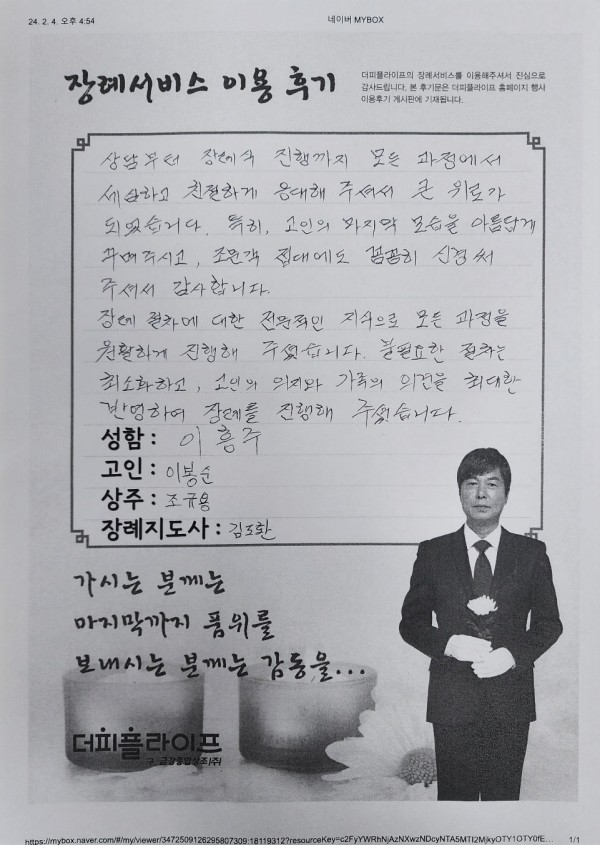 24. 2. 4. 오후 4:54
네이버 MYBOX
장례서비스 이용 후기
더피플라이프의 장례서비스를 이용해주셔서 진심으로
감사드립니다. 본 후기문은 더피플라이프 홈페이지 행사
이용후기 게시판에 기재됩니다.
상담부터 장례식 진행까지 모든 과정에서
세심하고 친절하게 응대해 주셔서 큰 위로가
되었습니다. 특히, 고인의 마지막 모습을 아름답게
꾸며주시고, 조문객 접대에도 꼼꼼히 신경써
주셔서 감사합니다.
장례 절차에 대한 전문적인 지식으로 모든 과정을
원활하게 진행해 주셨습니다. 불필요한 절차는
최소화하고, 고인의 의지와 가족의 의견을 최대한
반영하여 장례를 진행해 주셨습니다.
성함 : 이흥주
고인 : 이봉순
상주 : 조규용
장례지도사 :
가시는 분께는
마지막까지 품위를
보내시는 분께는 감동을...
더피플라이프
구. 금강종합상조(주)
1/1